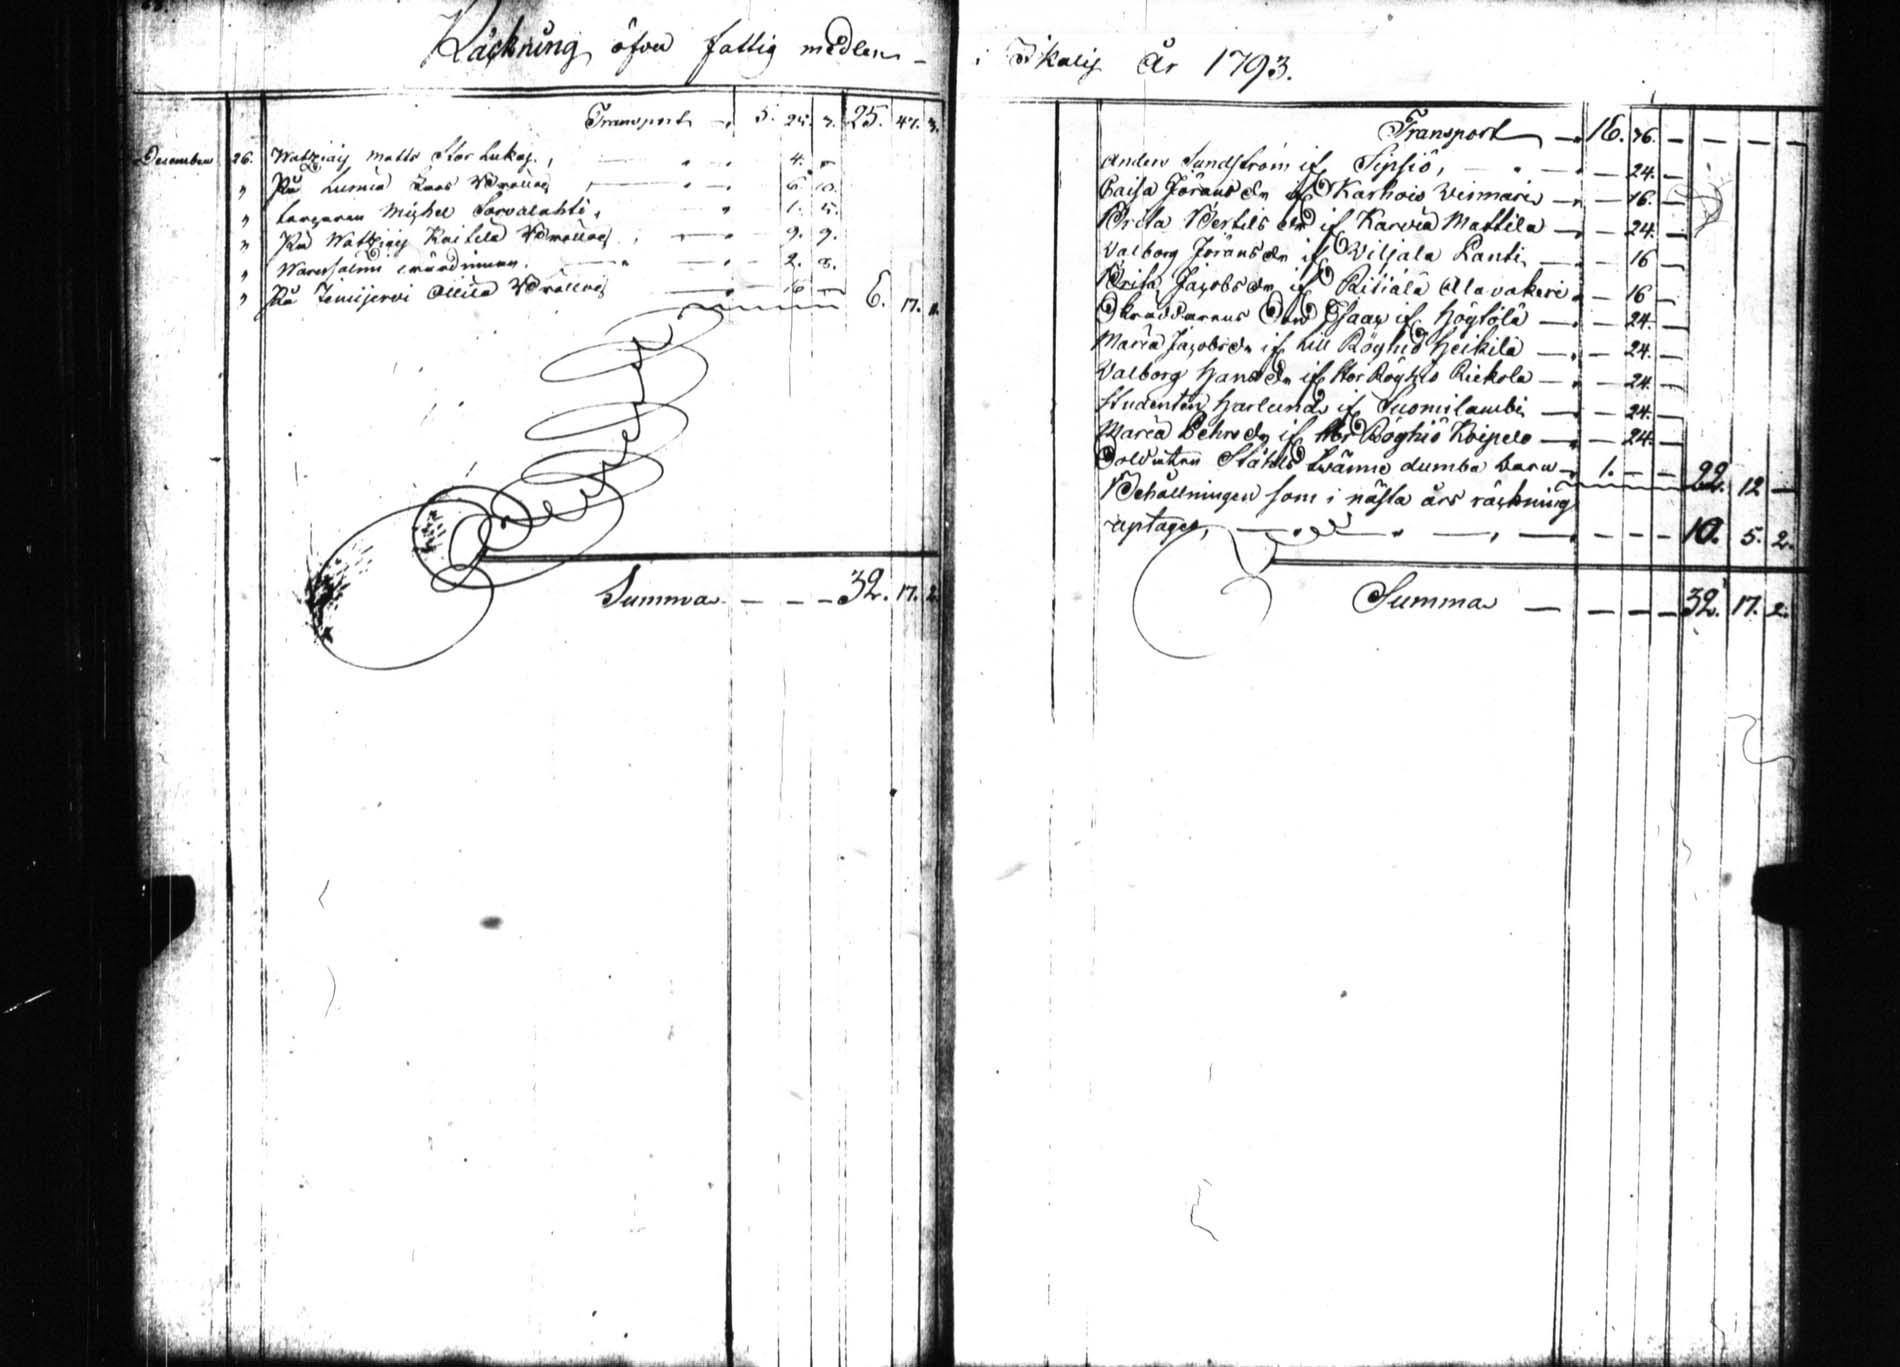 Räckning öfver fattig medlen i Ikalis År 1793.
Transport 5. 25. 7. 25. 47. 3.
December 26. Matts Stor Lukas 4.
" På Luomia Lars Bröllop 6. 10.
" Michel Sorvalahti 1. 5.
" På Kaitila Bröllop 9. 9.
" 2. 8.
" På Jemijervi Ollila Bröllop 6. 17.
Summa 32. 17. 2.
Transport 16. 36.
Anders Sandström if Sipsiö, 24.
Caisa Jörans dr if Karhois Vermari 16.
Brita Bertils dr if Karvia Mattila 24.
Valborg Jörans dr if Viljala Lanti 16
Brita Jacobs dr if Riitiälä Alavakeri 16
Skräddarens Isaac if Höytölä 24.
Maria Jacobs dr if Lill Röyhiö Heikilä 24.
Valborg Hans dr if Stor Röyhiö Riekola 24.
Studenten Harlund if Suomilambi 24.
Maria if Stor Röyhiö Koipelo 24.
Soldaten Ståhls tvänne dumba barn 1. 22. 12
Behållningen som i nästa års räckning
uptages, 10. 5. 2.
Summa 32. 17. 2.